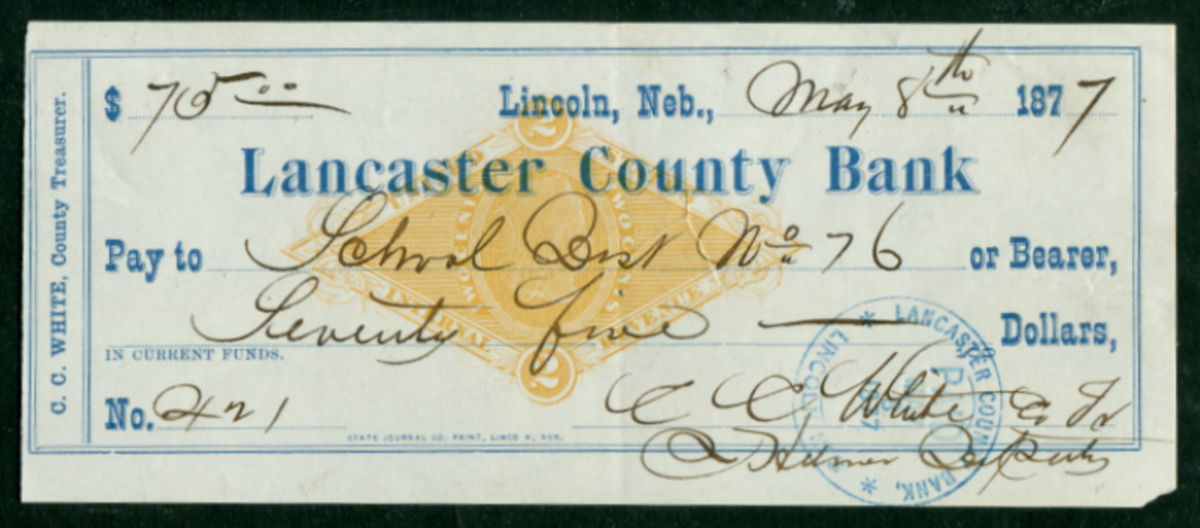 C. C. WHITE, County Treasurer.
$ 75.00 Lincoln, Neb., May 8th 1877
Lancaster County Bank
Pay to School Dist No 76 or Bearer,
Seventy five Dollars,
IN CURRENT FUNDS.
No. 421
C C White Co Tr
Deputy
STATE JOURNAL CO. PRINT, LINCOLN, NEB.
2
TWO CENTS
2
LANCASTER COUNTY BANK,
LINCOLN
PAID